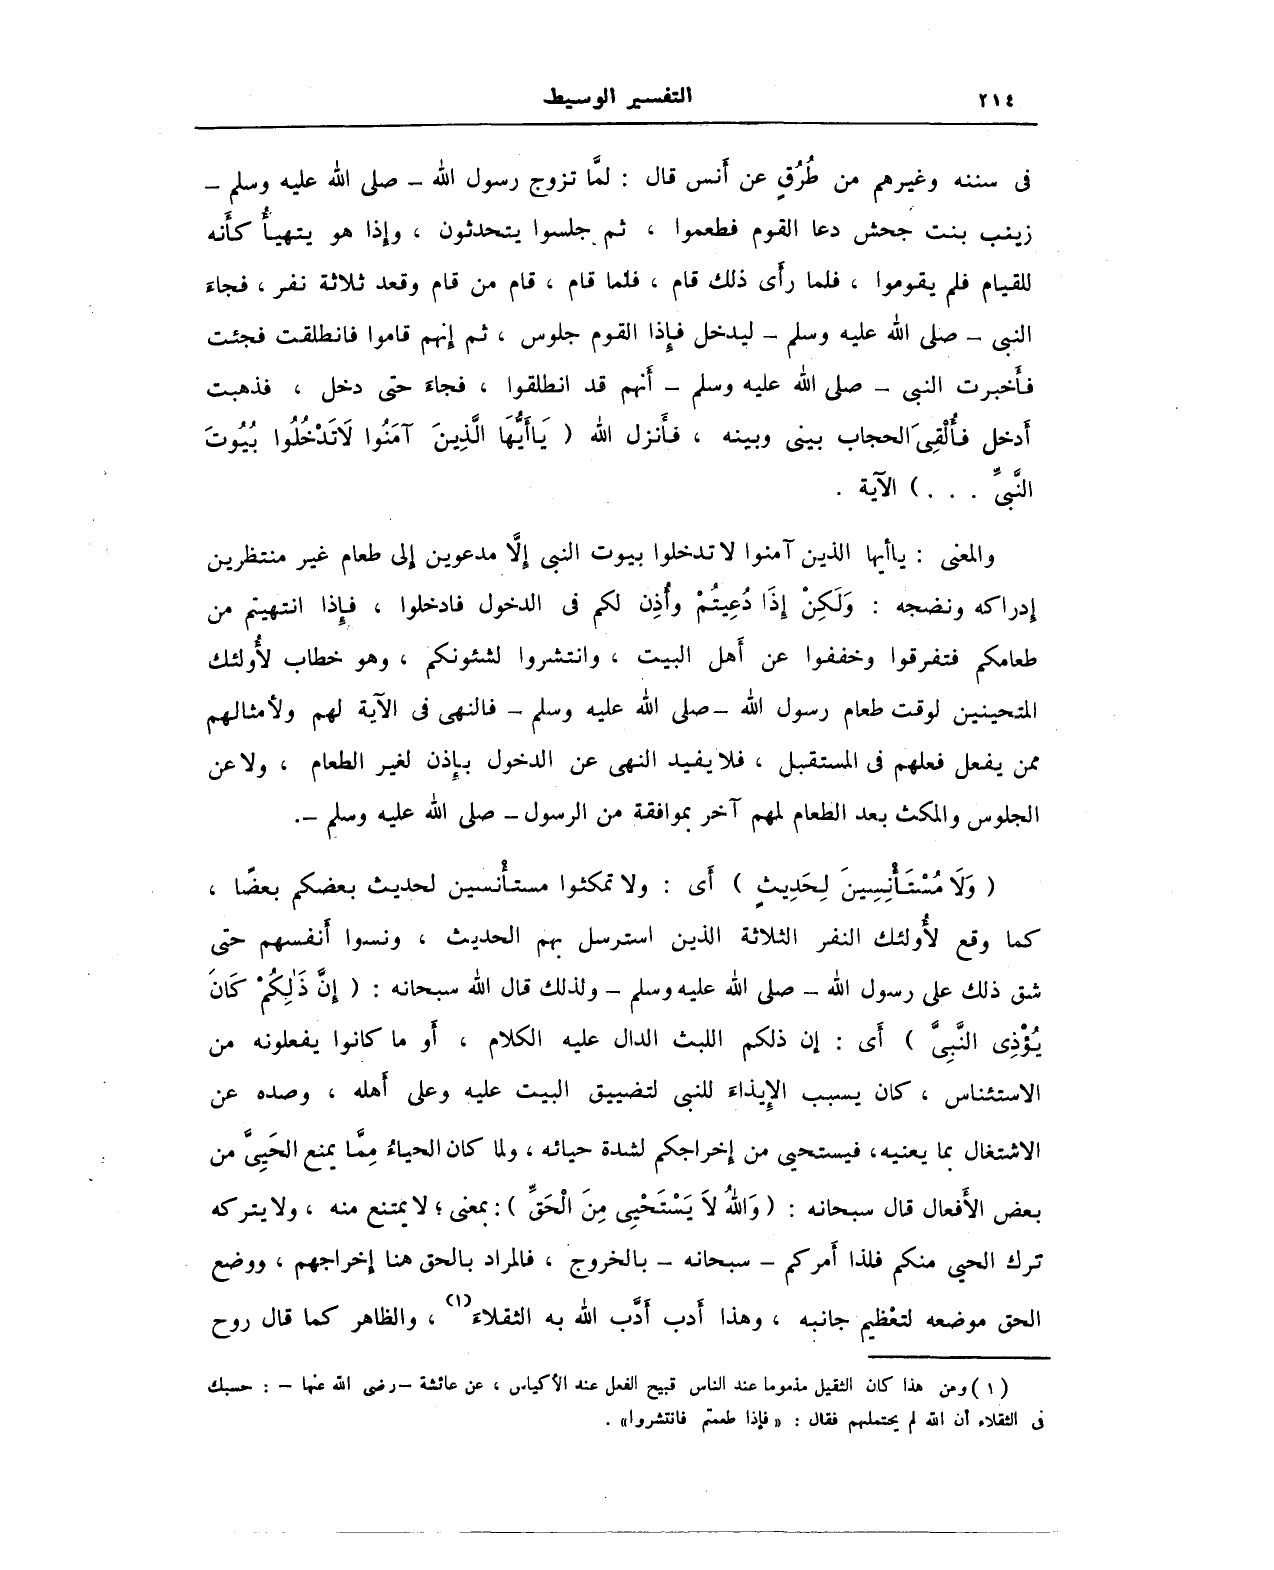 ٢١٤
التفسير الوسيط
فى سننه وغيرهم من طُرُقٍ عن أَنس قال : لمَّا تزوج رسول الله – صلى الله عليه وسلم –
زينب بنت جحش دعا القوم فطعموا ، ثم جلسوا يتحدثون ، وإذا هو يتهيأُ كأَنه
للقيام فلم يقوموا ، فلما رأَى ذلك قام ، فلما قام ، قام من قام وقعد ثلاثة نفر ، فجاءَ
النبى – صلى الله عليه وسلم – ليدخل فإِذا القوم جلوس ، ثم إِنهم قاموا فانطلقت فجئت
فأَخبرت النبى – صلى الله عليه وسلم – أَنهم قد انطلقوا ، فجاءَ حتى دخل ، فذهبت
أَدخل فأُلْقِىَ الحجاب بينى وبينه ، فأَنزل الله ( يَاأَيُّهَا الَّذِينَ آمَنُوا لَاتَدْخُلُوا بُيُوتَ
النَّبِىِّ . . . ) الآية .
والمعنى : ياأيها الذين آمنوا لاتدخلوا بيوت النبى إِلَّا مدعوين إلى طعام غير منتظرين
إدراكه ونضجه : وَلَكِنْ إِذَا دُعِيتُمْ وأُذِن لكم فى الدخول فادخلوا ، فإِذا انتهيتم من
طعامكم فتفرقوا وخففوا عن أَهل البيت ، وانتشروا لشئونكم ، وهو خطاب لأُولئك
المتحينين لوقت طعام رسول الله –صلى الله عليه وسلم – فالنهى فى الآية لهم ولأمثالهم
ممن يفعل فعلهم فى المستقبل ، فلايفيد النهى عن الدخول بإِذن لغير الطعام ، ولاعن
الجلوس والمكث بعد الطعام لمهم آخر بموافقة من الرسول – صلى الله عليه وسلم –.
( وَلَا مُسْتَأْنِسِينَ لِحَدِيثٍ ) أَى : ولاتمكثوا مستأْنسين لحديث بعضكم بعضًا ،
كما وقع لأُولئك النفر الثلاثة الذين استرسل بهم الحديث ، ونسوا أَنفسهم حتى
شق ذلك على رسول الله – صلى الله عليه وسلم – ولذلك قال الله سبحانه : ( إِنَّ ذَٰلِكُمْ كَانَ
يُؤْذِى النَّبِىَّ ) أَى : إن ذلكم اللبث الدال عليه الكلام ، أَو ما كانوا يفعلونه من
الاستئناس ، كان يسبب الإِيذاءَ للنبى لتضييق البيت عليه وعلى أَهله ، وصده عن
الاشتغال بما يعنيه، فيستحيى من إخراجكم لشدة حيائه ، ولما كان الحياءُ مِمَّا يمنع الحَيِىَّ من
بعض الأَفعال قال سبحانه : ( وَاللهُ لاَ يَسْتَحْيِى مِنَ الْحَقِّ ): بمعنى ؛ لايمتنع منه ، ولايتركه
ترك الحيى منكم فلذا أَمركم – سبحانه – بالخروج ، فالمراد بالحق هنا إخراجهم ، ووضع
الحق موضعه لتعْظيم جانبه ، وهذا أَدب أَدَّب الله به الثقلاءَ (١) ، والظاهر كما قال روح
(١) ومن هذا كان الثقيل مذموما عند الناس قبيح الفعل عند الأكياس ، عن عائشة –رضى الله عنها – : حسبك
فى الثقلاء أن الله لم يحتملهم فقال : «فإذا طعمتم فانتشروا» .